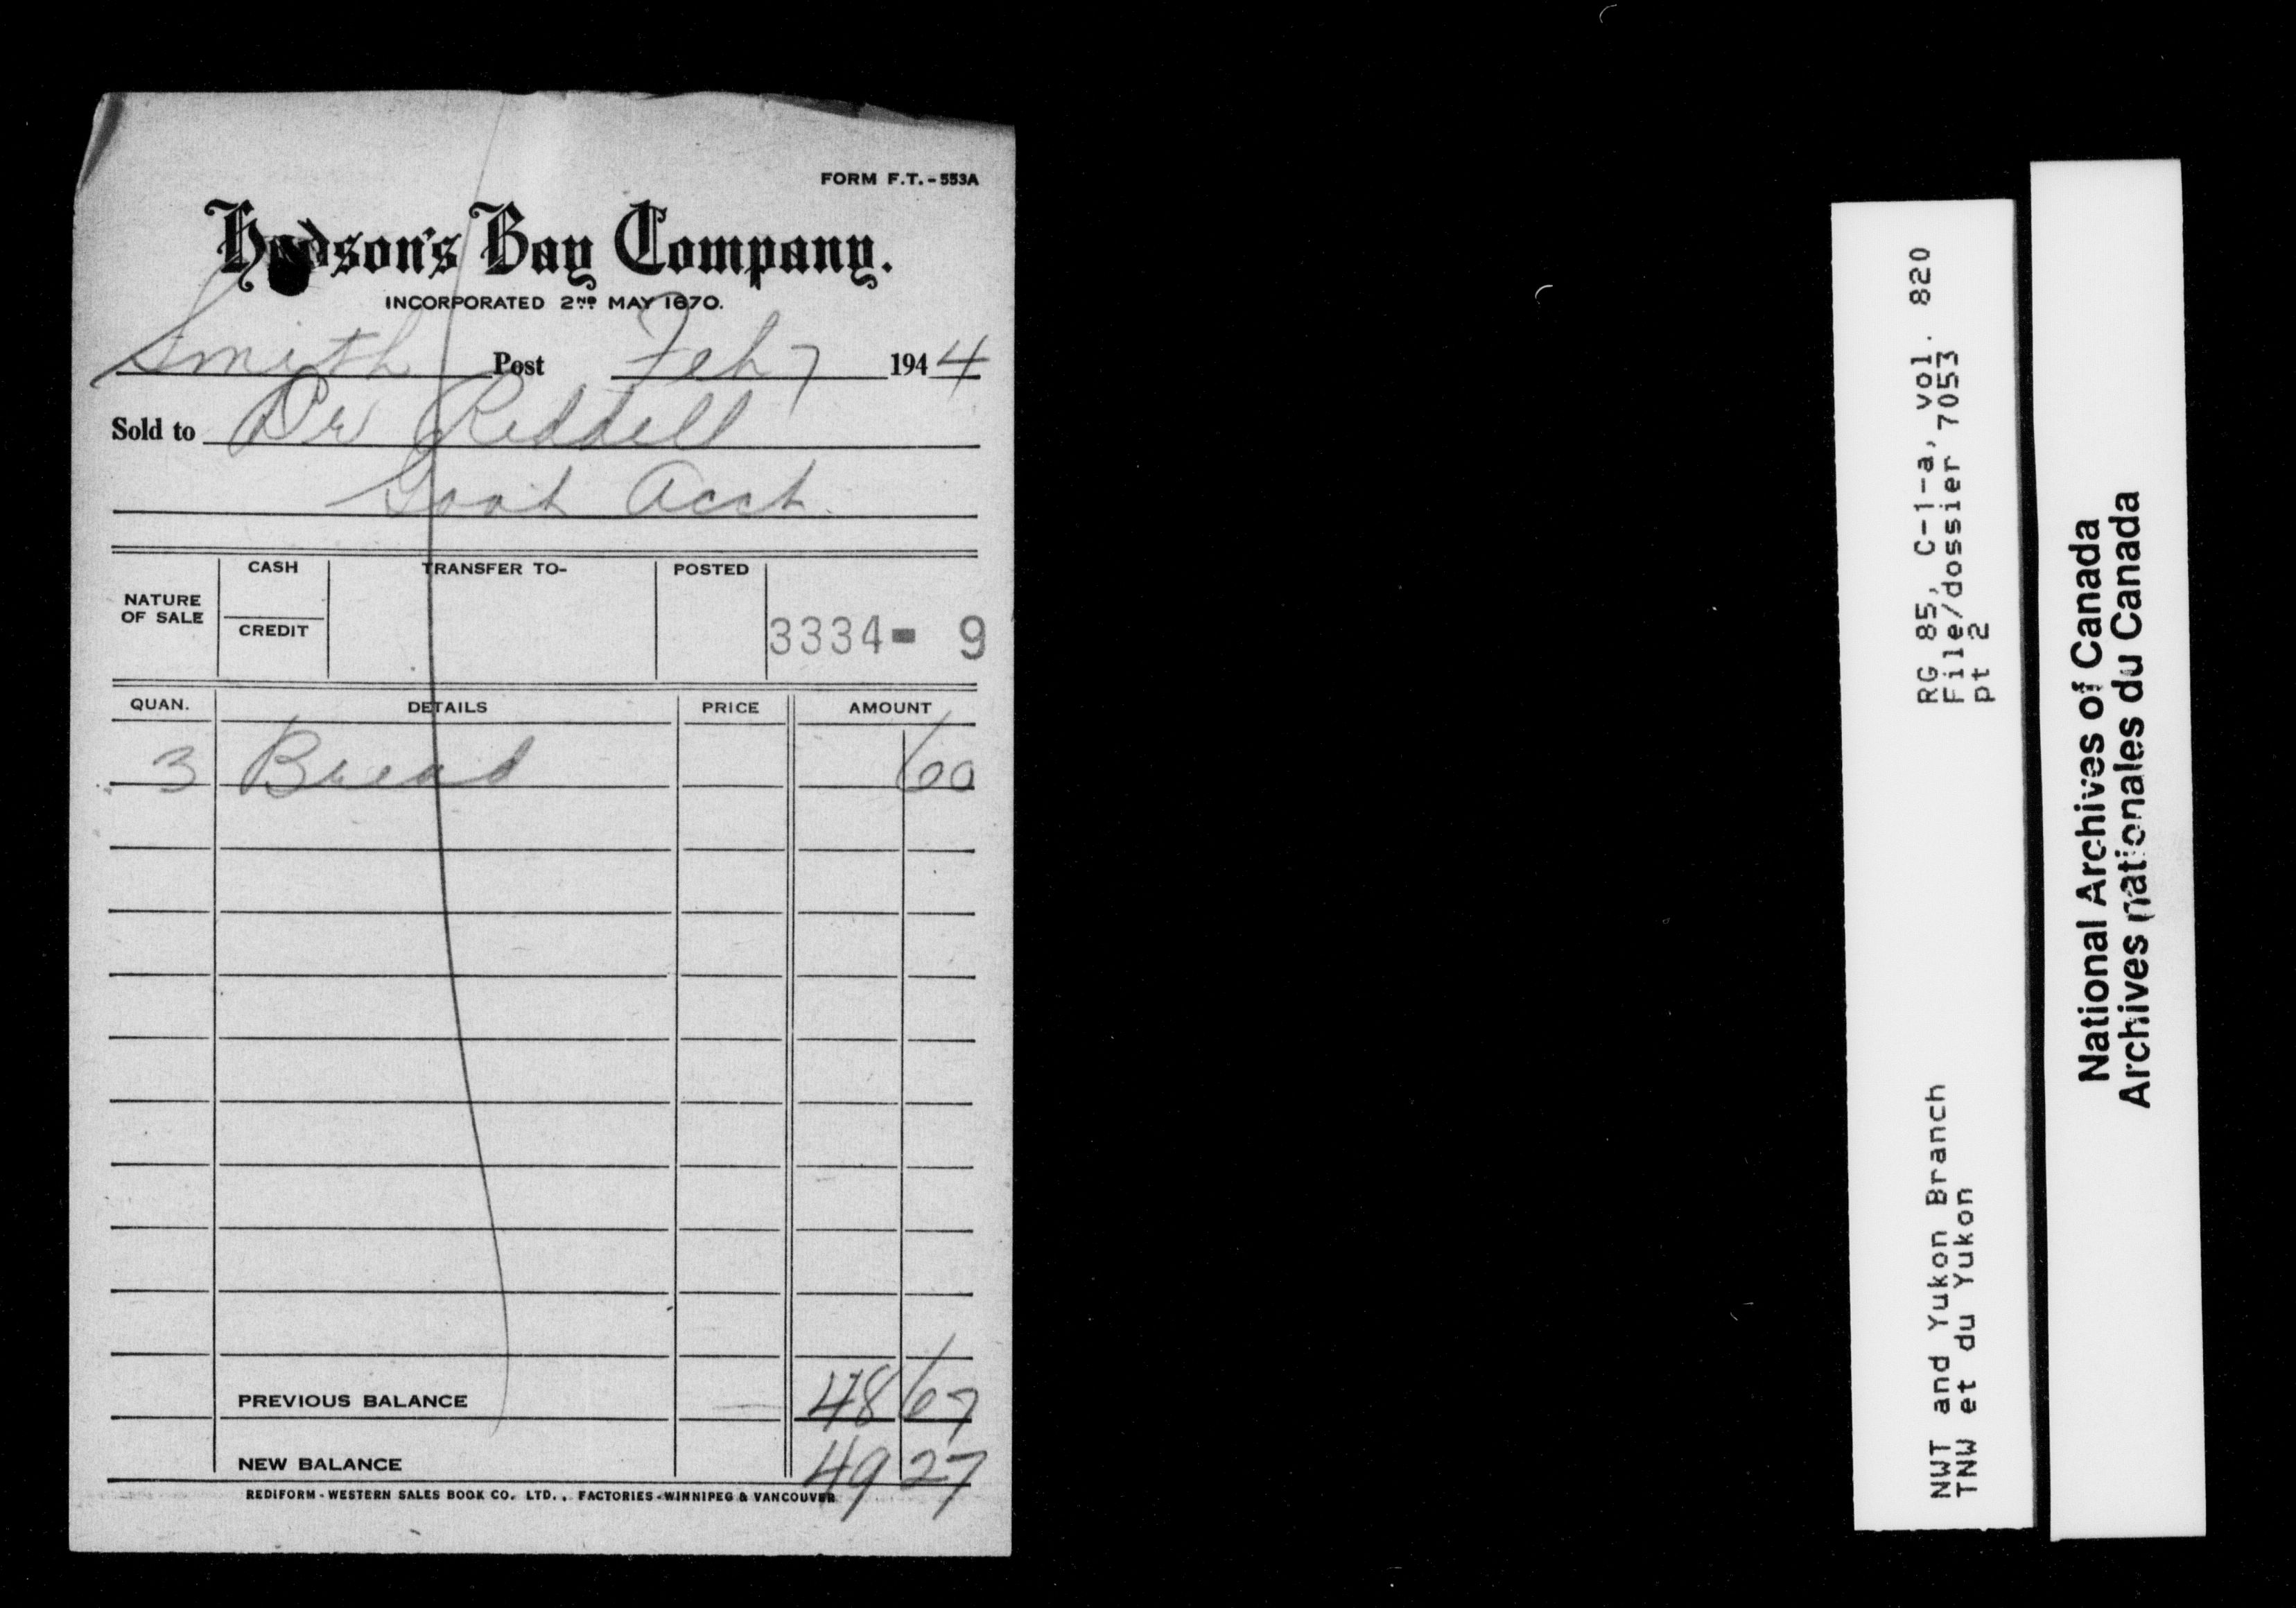 FORM F.T.-553A
Hudson's Bay Company.
INCORPORATED 2ND MAY 1670.
Smith Post Feb 7 1944
Sold to Dr Riddell
Govt Acct.
NATURE OF SALE CASH CREDIT TRANSFER TO- POSTED 3334- 9
QUAN. DETAILS PRICE AMOUNT
3 Bread 60
PREVIOUS BALANCE 48 67
NEW BALANCE 49 27
REDIFORM-WESTERN SALES BOOK CO. LTD., FACTORIES-WINNIPEG & VANCOUVER
RG 85, C-1-a, vol. 820
File/dossier 7053
pt 2
NWT and Yukon Branch
TNW et du Yukon
National Archives of Canada
Archives nationales du Canada